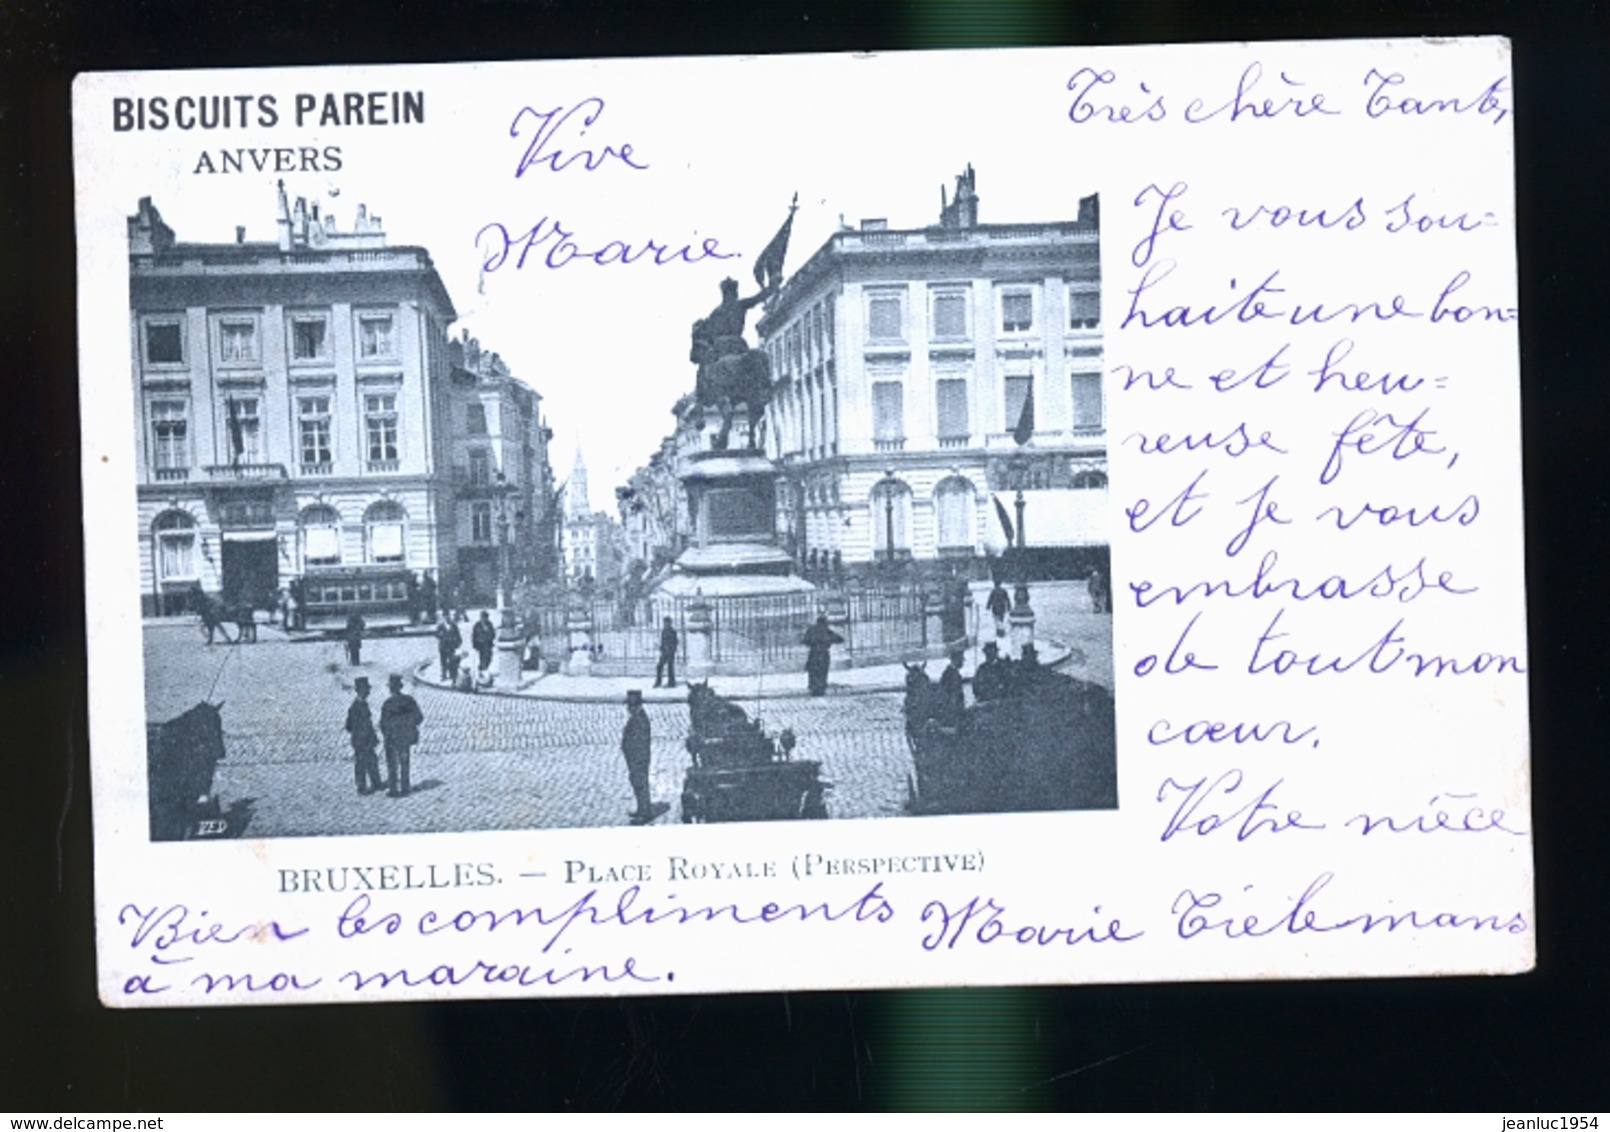 BISCUITS PAREIN
ANVERS
Vive
Marie.
Très chère Tante,
Je vous sou=
haite une bon=
ne et heu=
reuse fête,
et je vous
embrasse
de tout mon
cœur.
Votre nièce
Marie Tielemans
VED
BRUXELLES. — PLACE ROYALE (PERSPECTIVE)
Bien les compliments
à ma maraine.
www.delcampe.net
jeanluc1954